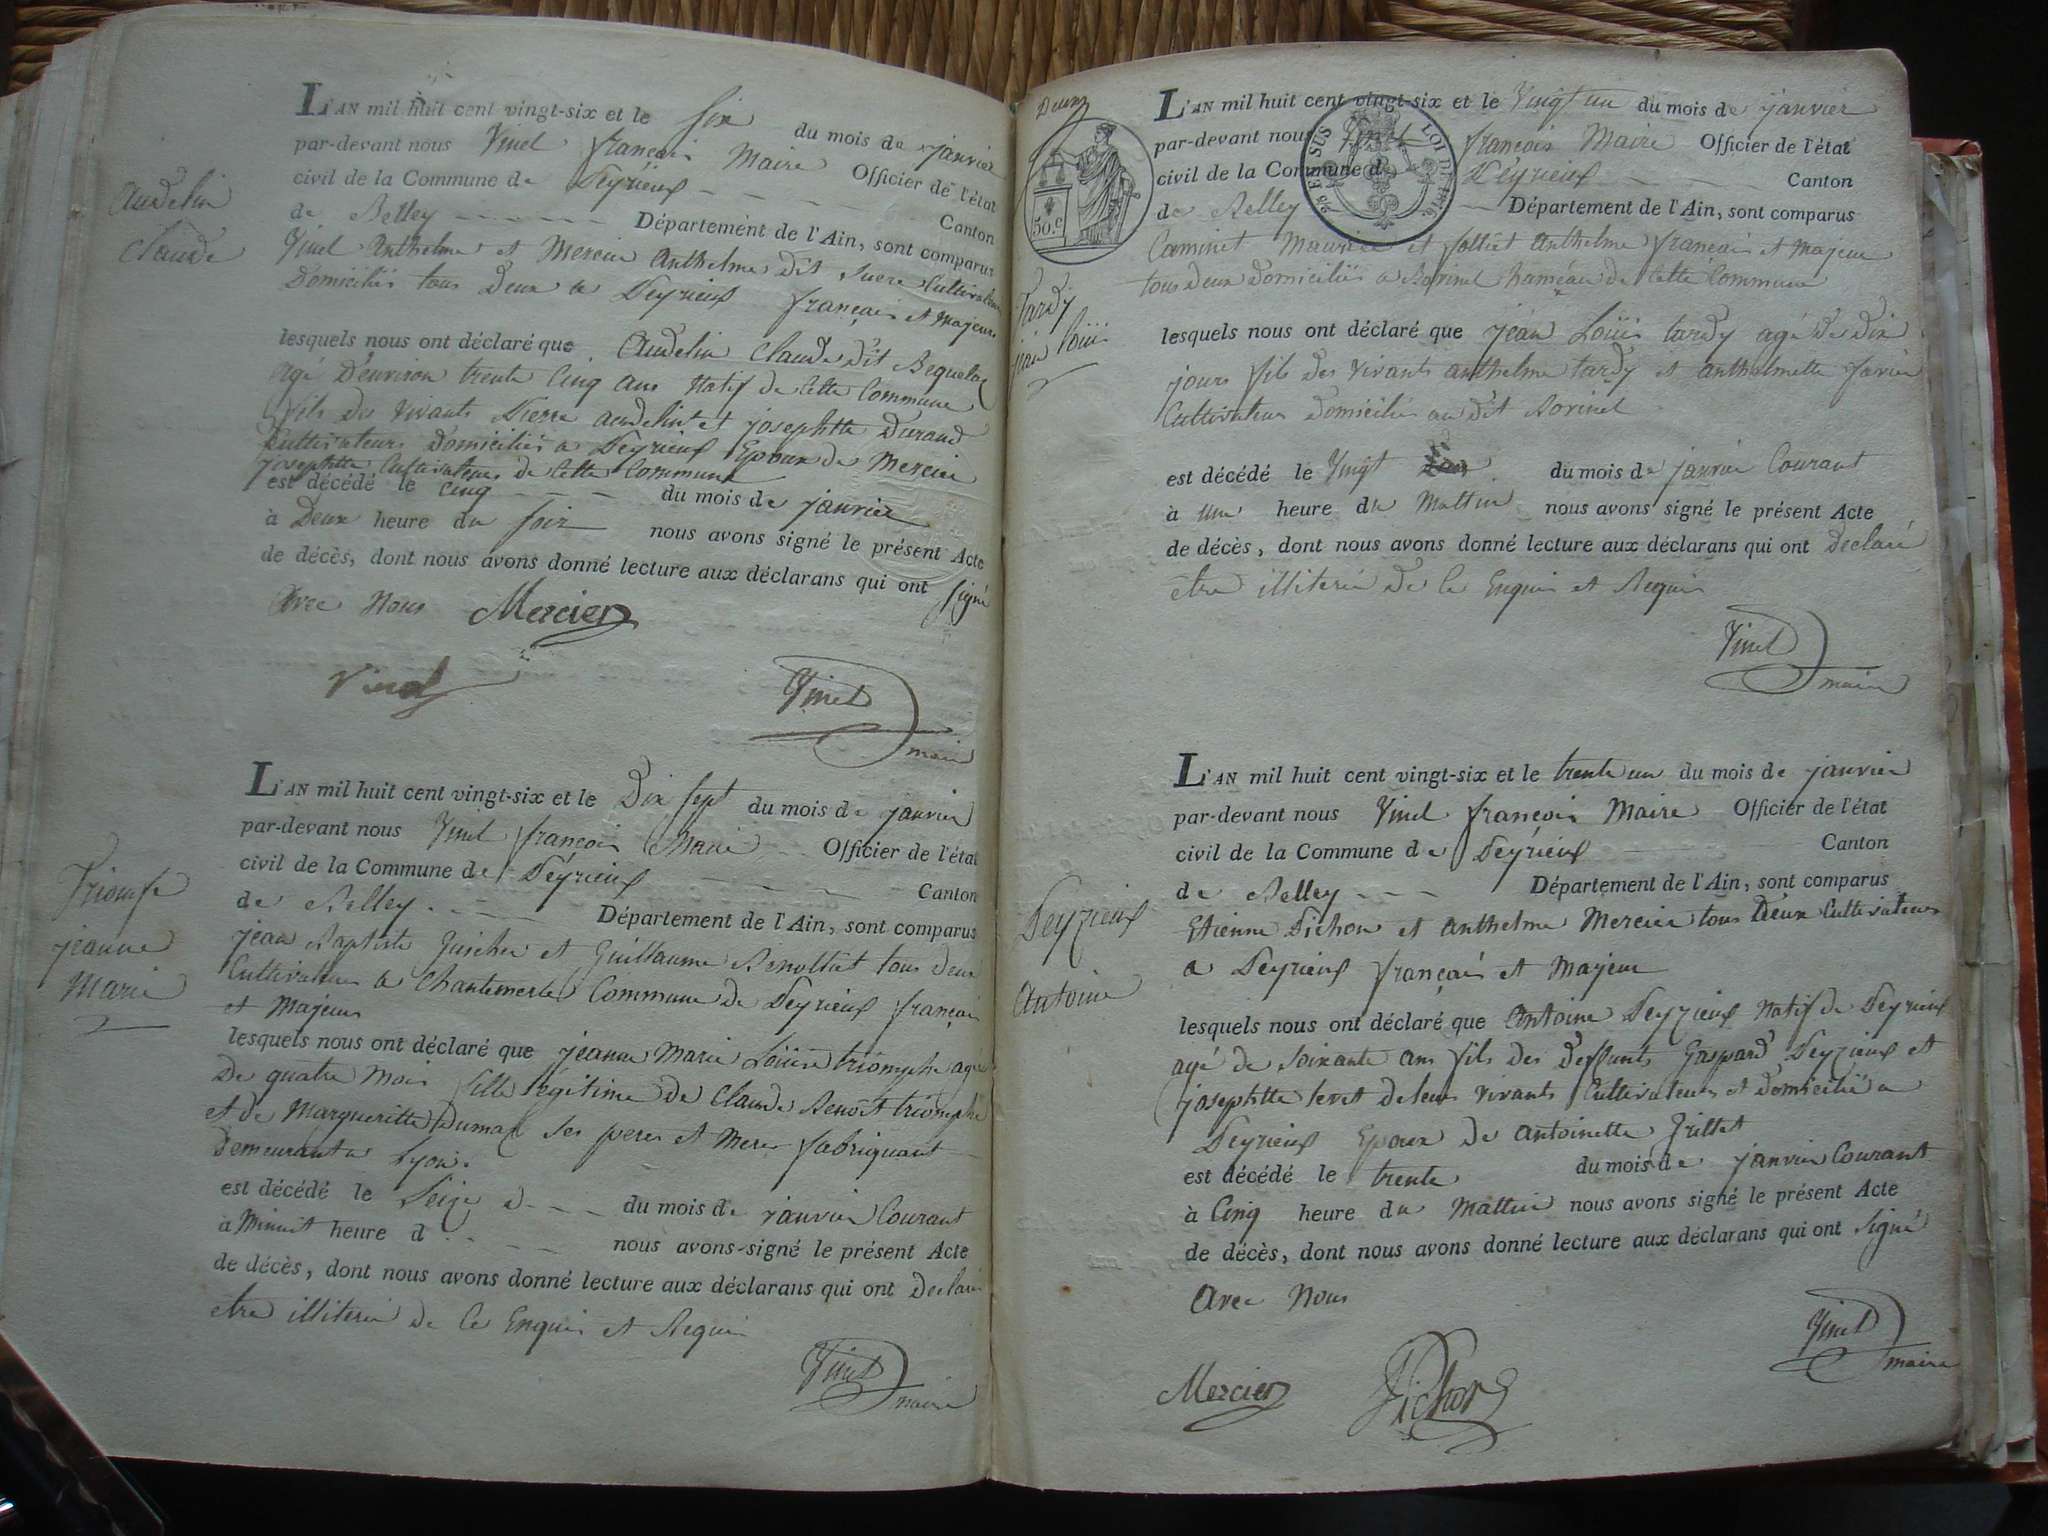 Audelin
Claude
L'AN mil huit cent vingt-six et le six du mois de janvier
par-devant nous Vinel françois Maire Officier de l'état
civil de la Commune de Peyrieux Canton
de Belley Département de l'Ain, sont comparus
Vinel Anthelme et Mercier Anthelme dit Cultivateurs
Domiciliés tous Deux a Peyrieux français et Majeurs
lesquels nous ont déclaré que Audelin Claude dit
agé D'environ trente Cinq ans Natif de Cette Commune
fils des vivants Pierre audelin et josephtte Durand
Cultivateurs Domiciliés a Peyrieux Epoux de Mercier
josephtte Cultivateurs de Cette Commune
est décédé le cinq du mois de janvier
à Deux heure du soir nous avons signé le présent Acte
de décès, dont nous avons donné lecture aux déclarans qui ont signé
Avec Nous Mercier
Vinel
Vinel
maire
Triomfe
jeanne
Marie
L'AN mil huit cent vingt-six et le Dix sept du mois de janvier
par-devant nous Vinel françois Maire Officier de l'état
civil de la Commune de Peyrieux Canton
de Belley Département de l'Ain, sont comparus
jean Baptiste et Guillaume tous deux
Cultivateurs a Chantemerle Commune de Peyrieux français
et Majeurs
lesquels nous ont déclaré que jeanne Marie Loüise triomphe agée
De quatre Mois fille légitime de Claude Benoît triomphe
et de Margueritte Dumas ses peres et Mere fabriquant
Demeurant a Lyon.
est décédé le Seize du mois de janvier Courant
à Minuit heure d nous avons signé le présent Acte
de décès, dont nous avons donné lecture aux déclarans qui ont Déclaré
etre illiteré de Ce Enquis et Requis
Vinel
maire
Deux
50.c
SUS LOI DU
Tardy
jean loüis
L'AN mil huit cent vingt-six et le Vingt un du mois de janvier
par-devant nous Vinel françois Maire Officier de l'état
civil de la Commune de Peyrieux Canton
de Belley Département de l'Ain, sont comparus
Caminet Maurice et Anthelme français et Majeur
tous Deux Domiciliés a hameau de Cette Commune
lesquels nous ont déclaré que jean Loüis tardy agé De dix
jours fils des vivants anthelme tardy et anthelmette
Cultivateurs Domiciliés au dit
est décédé le Vingt du mois de janvier Courant
à une heure du Mattin nous avons signé le présent Acte
de décès, dont nous avons donné lecture aux déclarans qui ont Declaré
être illiteré de Ce Enquis et Requis
Vinel
maire
Peyzieux
Antoine
L'AN mil huit cent vingt-six et le trente un du mois de janvier
par-devant nous Vinel françois Maire Officier de l'état
civil de la Commune de Peyrieux Canton
de Belley Département de l'Ain, sont comparus
Etienne Pichon et Anthelme Mercier tous Deux Cultivateurs
a Peyrieux français et Majeur
lesquels nous ont déclaré que Antoine Peyzieux Natif de Peyrieux
agé de soixante ans fils des deffunts Gaspard Peyzieux et
josephtte de leurs vivants Cultivateurs et Domicilié a
Peyrieux Epoux de Antoinette Grillet
est décédé le trente du mois de janvier Courant
à Cinq heure du Mattin nous avons signé le présent Acte
de décès, dont nous avons donné lecture aux déclarans qui ont Signé
Avec Nous
Vinel
maire
Mercier Pichon